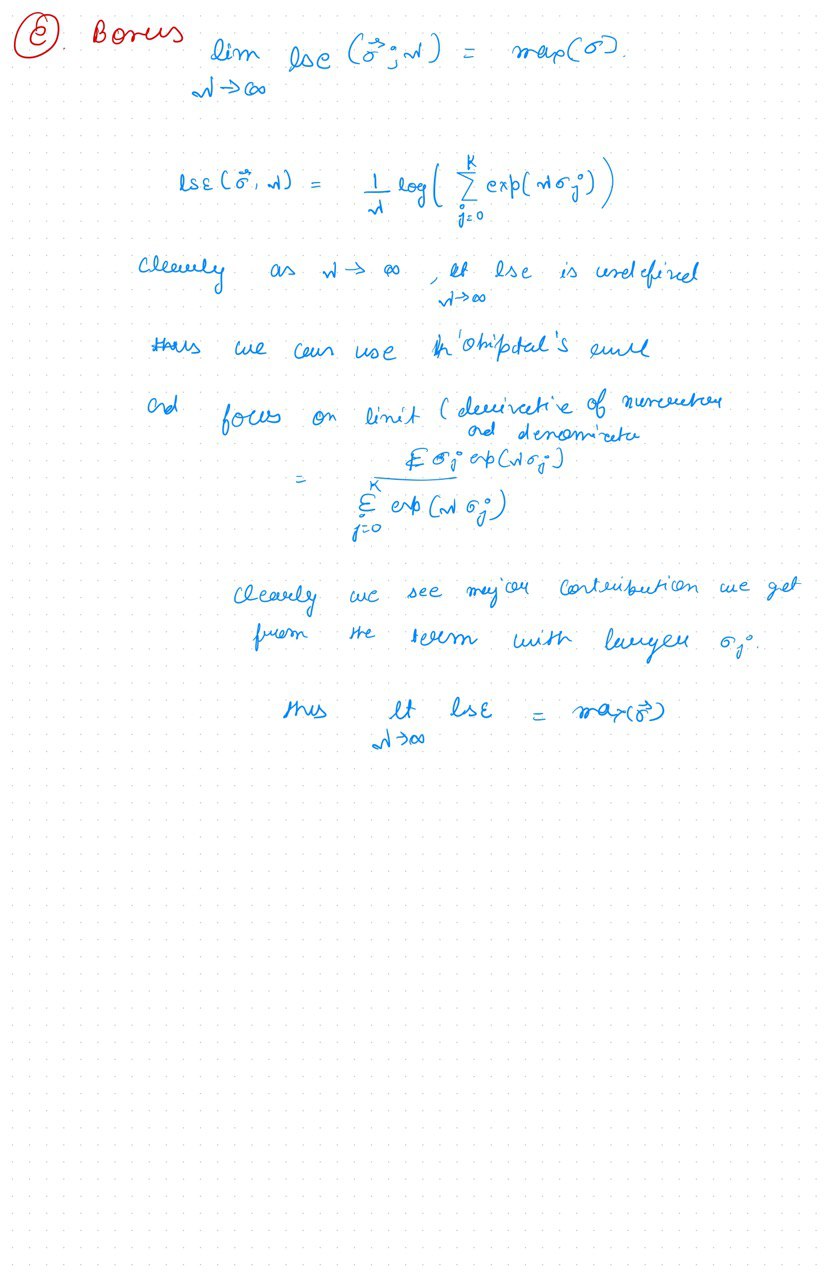 (e). Bonus
lim lse (σ⃗; λ) = max(σ).
λ→∞
lsε(σ⃗, λ) = 1/λ log( Σ_{j=0}^{K} exp(λσj) )
Clearly as λ → ∞, lt lse is undefined
λ→∞
thus we can use L'Hospital's rule
and focus on limit (derivative of numerator
and denominator
= Σ σj exp(λσj) / Σ_{j=0}^{K} exp(λσj)
Clearly we see major contribution we get
from the term with larger σj.
thus lt lsε = max(σ⃗)
λ→∞